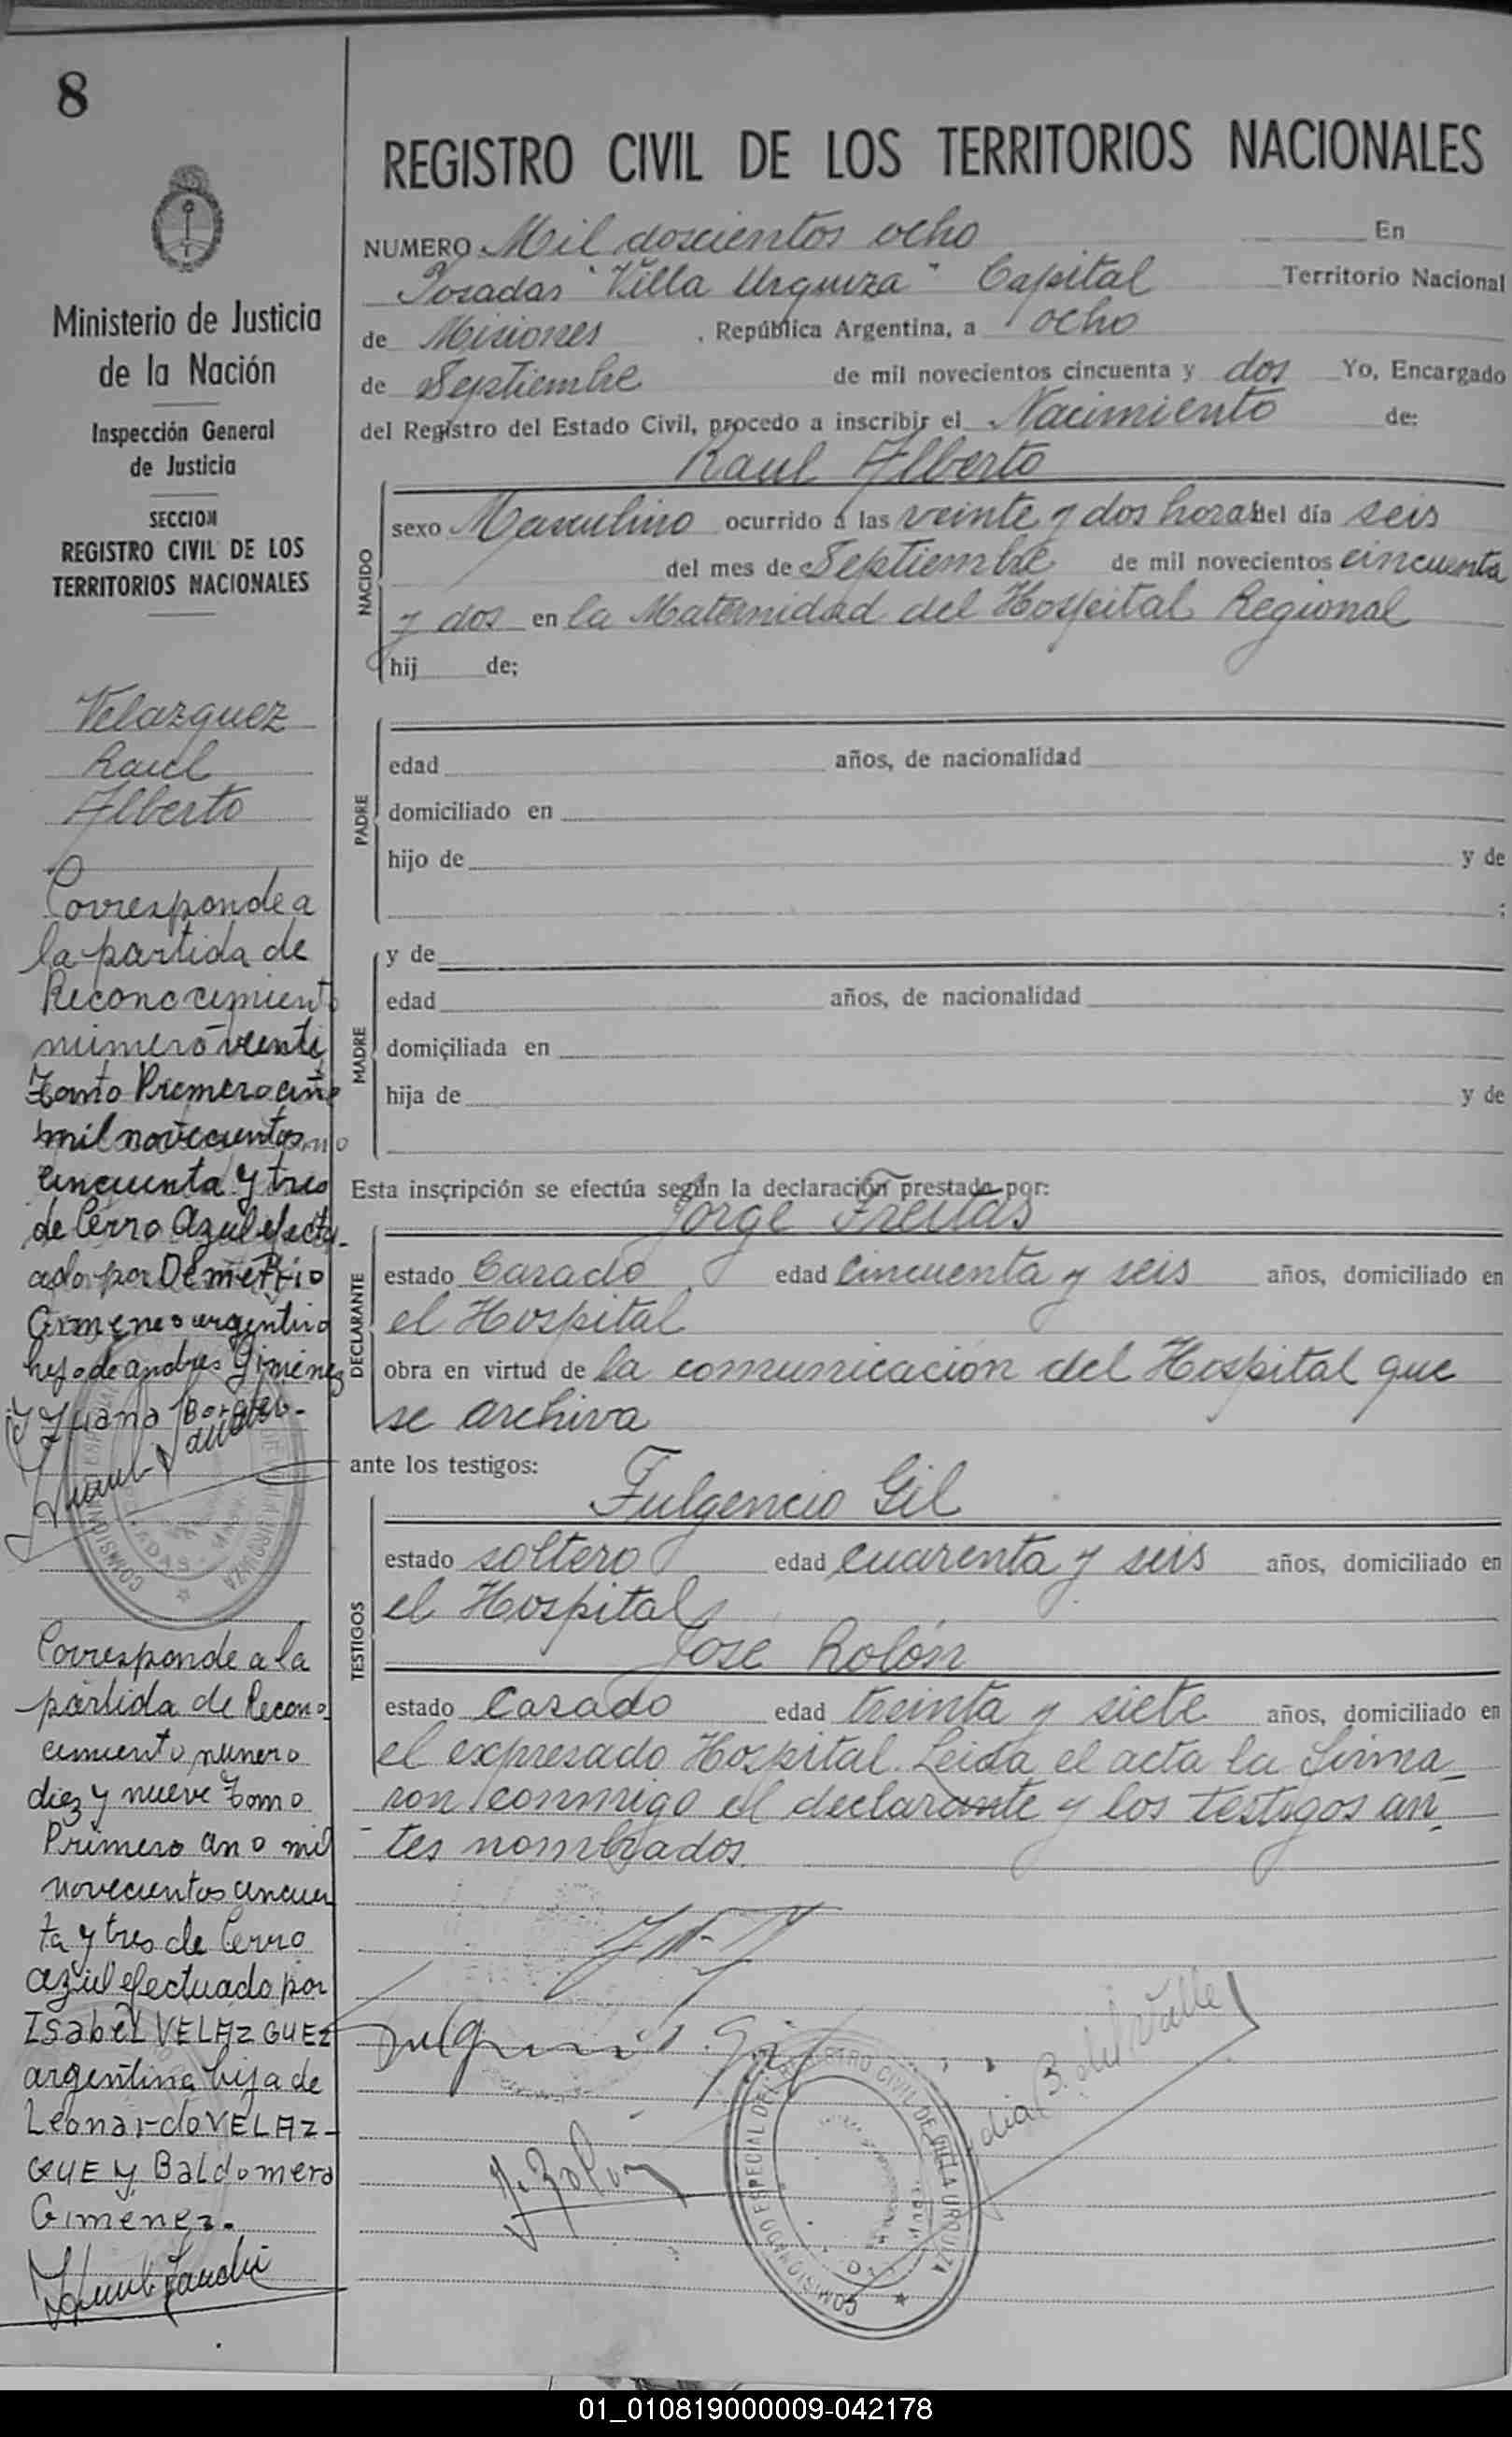 8
Ministerio de Justicia
de la Nación
Inspección General
de Justicia
SECCION
REGISTRO CIVIL DE LOS
TERRITORIOS NACIONALES
Velazquez
Raul
Alberto
Corresponde a
la partida de
Reconocimiento
número veinti
Tomo Primero año
mil novecientos
cincuenta y tres
de Cerro Azul efectu-
ado por Demetrio
Gimenes argentino
hijo de Andres Gimenez
y Juana
Corresponde a la
partida de Recono-
cimiento numero
diez y nueve Tomo
Primero ano mil
novecientos cincuen
ta y tres de Cerro
azul efectuado por
Isabel VELAZGUEZ
argentina hija de
Leonardo VELAZ-
QUE y Baldomera
Gimenez.
REGISTRO CIVIL DE LOS TERRITORIOS NACIONALES
NUMERO Mil doscientos ocho En
Posadas "Villa Urquiza" Capital Territorio Nacional
de Misiones, República Argentina, a ocho
de Septiembre de mil novecientos cincuenta y dos Yo, Encargado
del Registro del Estado Civil, procedo a inscribir el Nacimiento de:
Raul Alberto
NACIDO
sexo Masculino ocurrido á las veinte y dos horas del día seis
del mes de Septiembre de mil novecientos cincuenta
y dos en la Maternidad del Hospital Regional
hij de;
PADRE
edad años, de nacionalidad
domiciliado en
hijo de y de
;
MADRE
y de
edad años, de nacionalidad
domiciliada en
hija de y de
Esta inscripción se efectúa según la declaración prestada por:
Jorge Freitas
DECLARANTE
estado Casado edad cincuenta y seis años, domiciliado en
el Hospital
obra en virtud de la comunicación del Hospital que
se archiva
ante los testigos:
Fulgencio Gil
TESTIGOS
estado soltero edad cuarenta y seis años, domiciliado en
el Hospital
Jose Rolón
estado casado edad treinta y siete años, domiciliado en
el expresado Hospital. Leida el acta la firma-
ron conmigo el declarante y los testigos an-
tes nombrados.
B. del Valle
COMISIONADO ESPECIAL DEL REGISTRO CIVIL DE VILLA URQUIZA
01_010819000009-042178